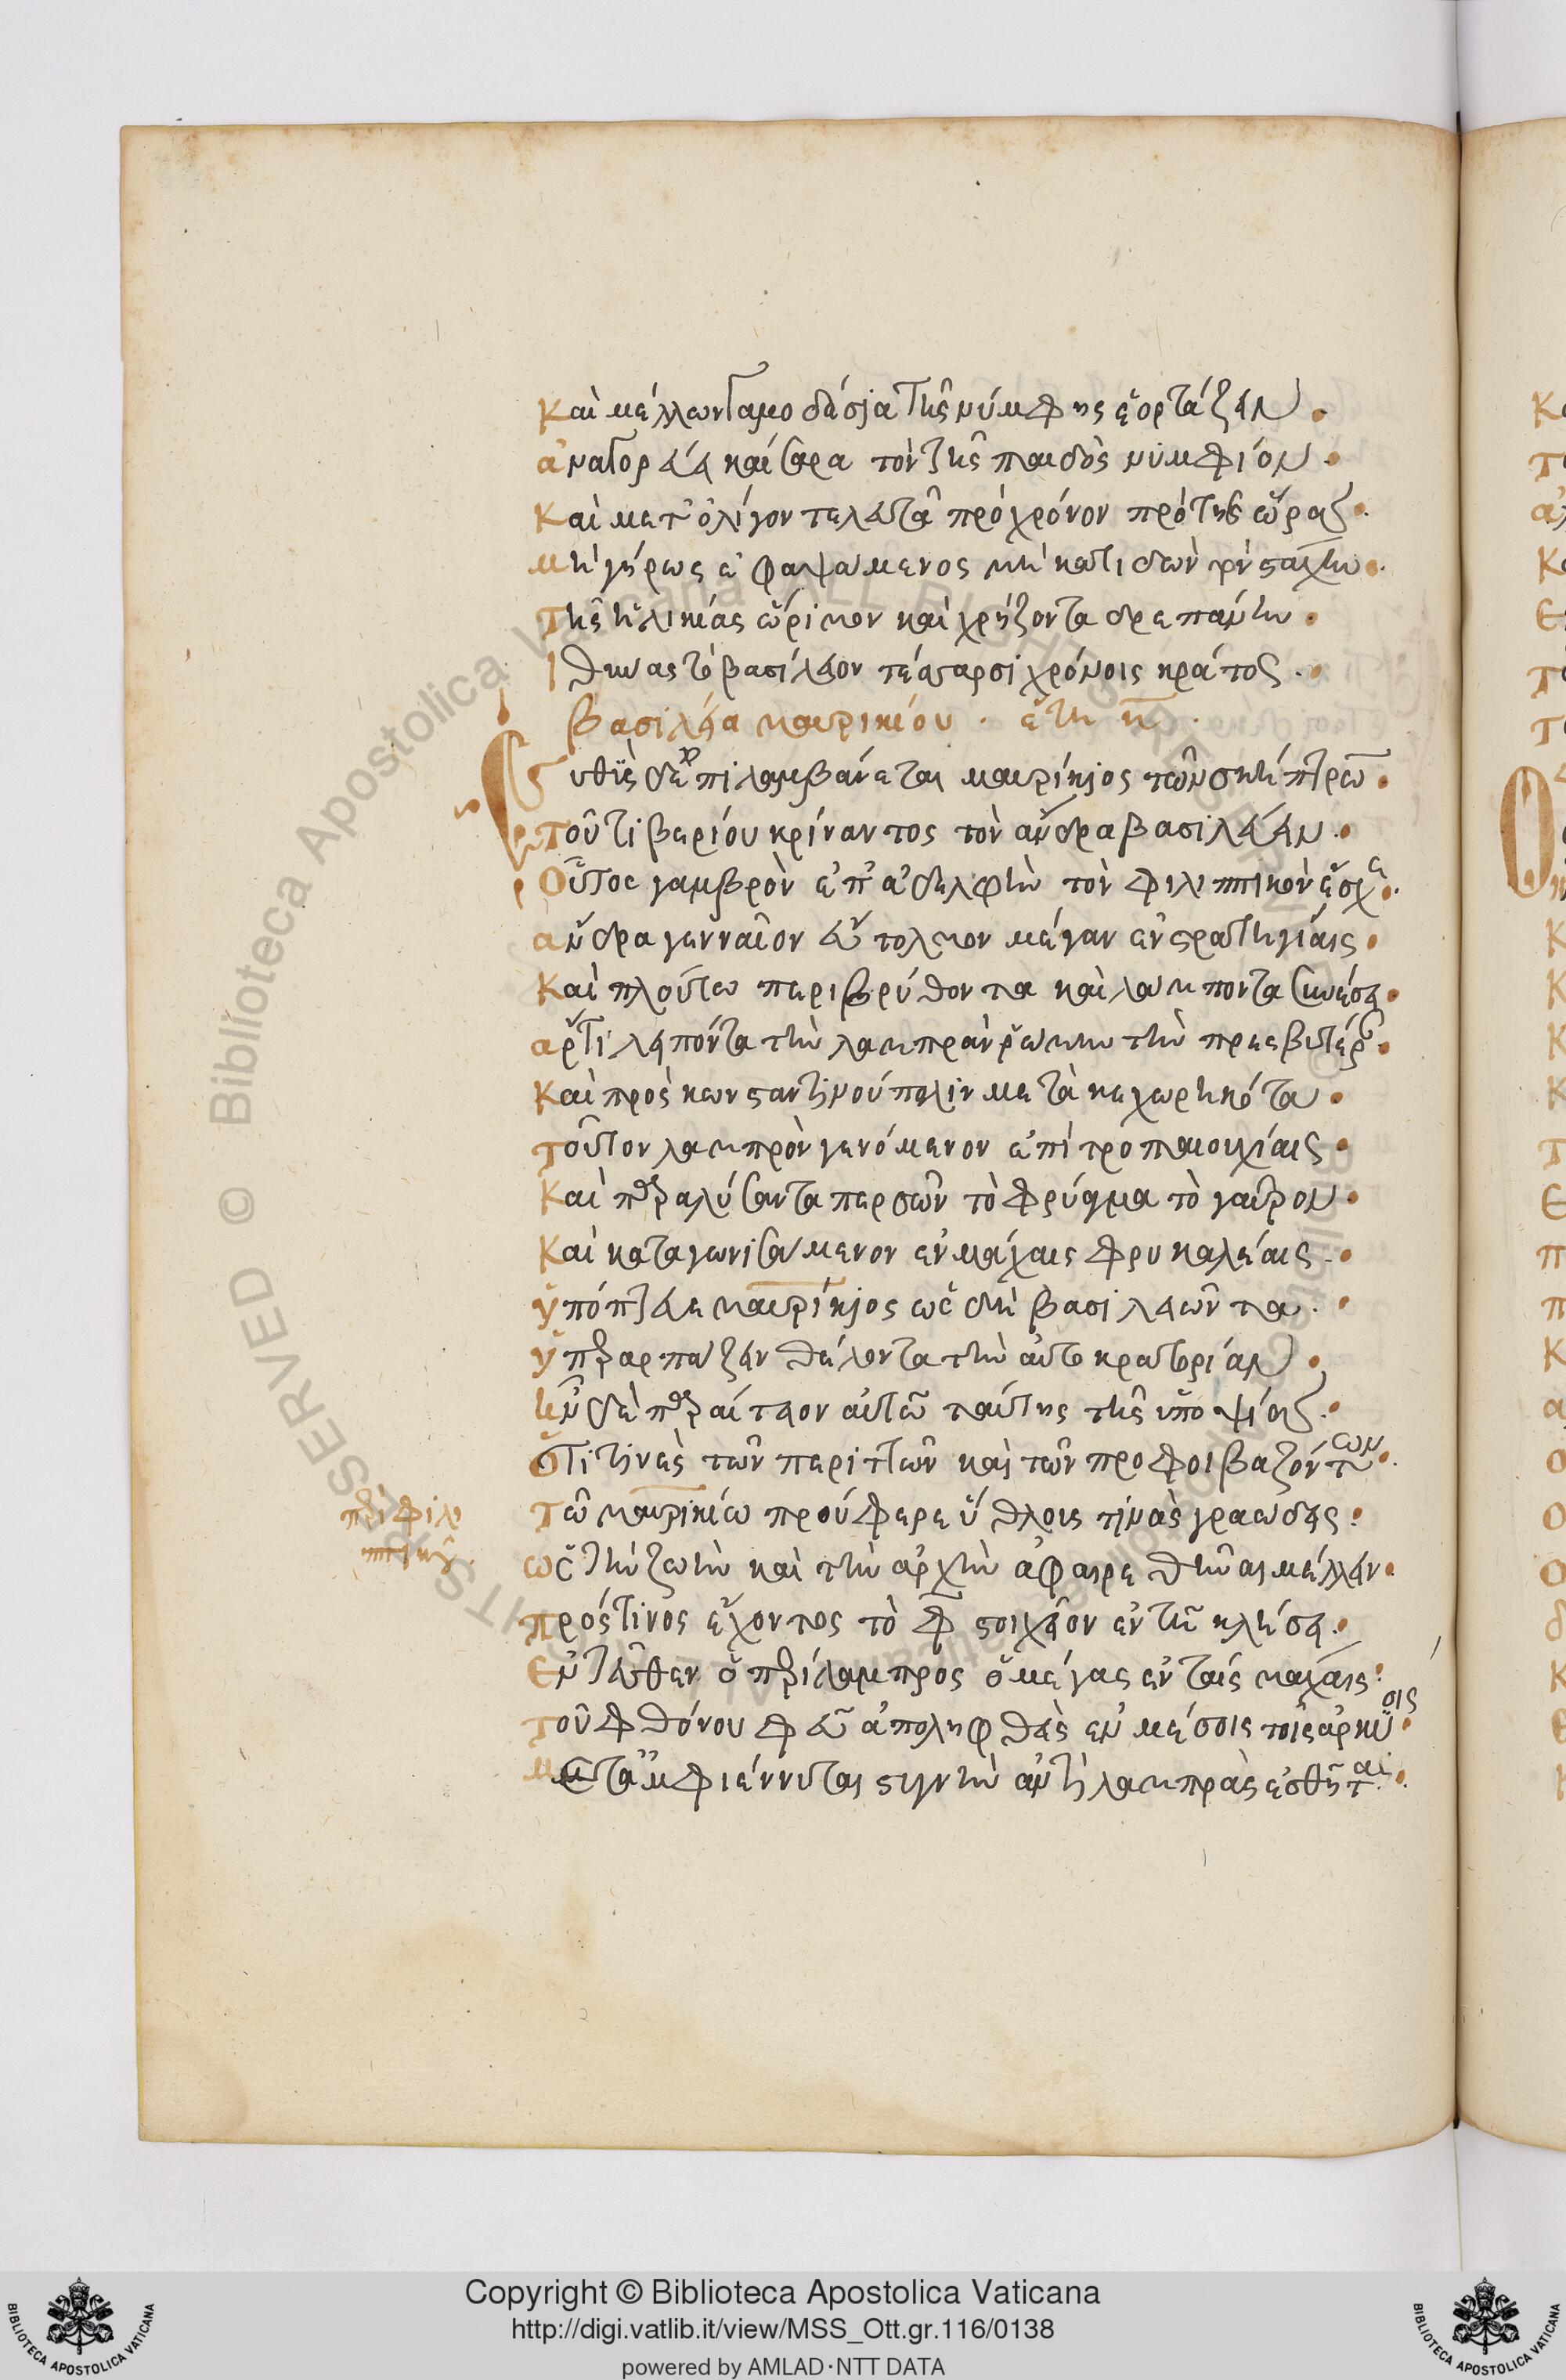 Καὶ μέλλων γαμοδαίσια τῆς νύμφης ἑορτάζειν.
ἀναγορεύει καίσαρα τὸν τῆς παιδὸς νυμφίον.
Καὶ μετ' ὀλίγον τελευτᾶ πρὸ χρόνον πρὸ τῆς ὥρας.
μὴ γήρως ἐφαψάμενος μὴ κατιδὼν ῥιν στάχυν.
τῆς ἡλικίας ὥριμον καὶ χρήζοντα δρεπάνην.
ἰθύνας τὸ βασίλειον τέσσαρσι χρόνοις κράτος.
βασιλεία μαυρικίου. ἔτη κ.
Εὐθὺς δ' ἐπιλαμβάνεται μαυρίκιος τῶν σκήπτρων.
τοῦ τιβερίου κρίναντος τὸν ἄνδρα βασιλεύειν.
Οὗτος γαμβρὸν ἐπ' ἀδελφῆ τὸν φιλιππικὸν ἔσχε.
ἄνδρα γενναῖον εὔτολμον μέγαν ἐν στρατηγίαις.
Καὶ πλούτω περιβρύθοντα καὶ λάμποντα συνέσει.
ἄρτι λιπόντα τὴν λαμπρὰν ῥώμην τὴν πρεσβυτέραν.
Καὶ πρὸς κωνσταντινούπολιν μετὰ κεχωρηκότα.
τοῦτον λαμπρὸν γενόμενον ἐπὶ τροπαιουχίαις.
Καὶ παραλύσαντα περσῶν τὸ φρύαγμα τὸ γαῦρον.
Καὶ καταγωνισάμενον ἐν μάχαις φρυκαλέαις.
ὑπόπτευε μαυρίκιος ὡς δὴ βασιλειῶντα.
ὑπεξαρπάζειν θέλοντα τὴν αὐτοκρατορίαν.
ἦν δὲ παραίτιον αὐτῶ ταύτης τῆς ὑποψίας.
ὅτι τινὲς τῶν περιττῶν καὶ τῶν προφοιβαζόντων.
τῶ μαυρικίω προύφερε ὕθλους τινὰς γραώδεις.
περὶ φιλι
ππικοῦ.
ὡς τὴν ζωὴν καὶ τὴν ἀρχὴν ἀφαιρεθῆναι μέλλειν.
πρός τινος ἔχοντος τὸ φ στοιχεῖον ἐν τῆ κλήσει.
Ἐντεῦθεν ὁ περίλαμπρος ὁ μέγας ἐν ταῖς μάχαις.
τοῦ φθόνου φεῦ ἀποληφθεὶς ἐν μέσοις τοῖς ἄρκυσις.
μεταμφιέννυται στυγνὴν ἀντὶ λαμπρᾶς ἐσθῆται.
Copyright © Biblioteca Apostolica Vaticana
http://digi.vatlib.it/view/MSS_Ott.gr.116/0138
powered by AMLAD·NTT DATA
BIBLIOTECA APOSTOLICA VATICANA
BIBLIOTECA APOSTOLICA VATICANA